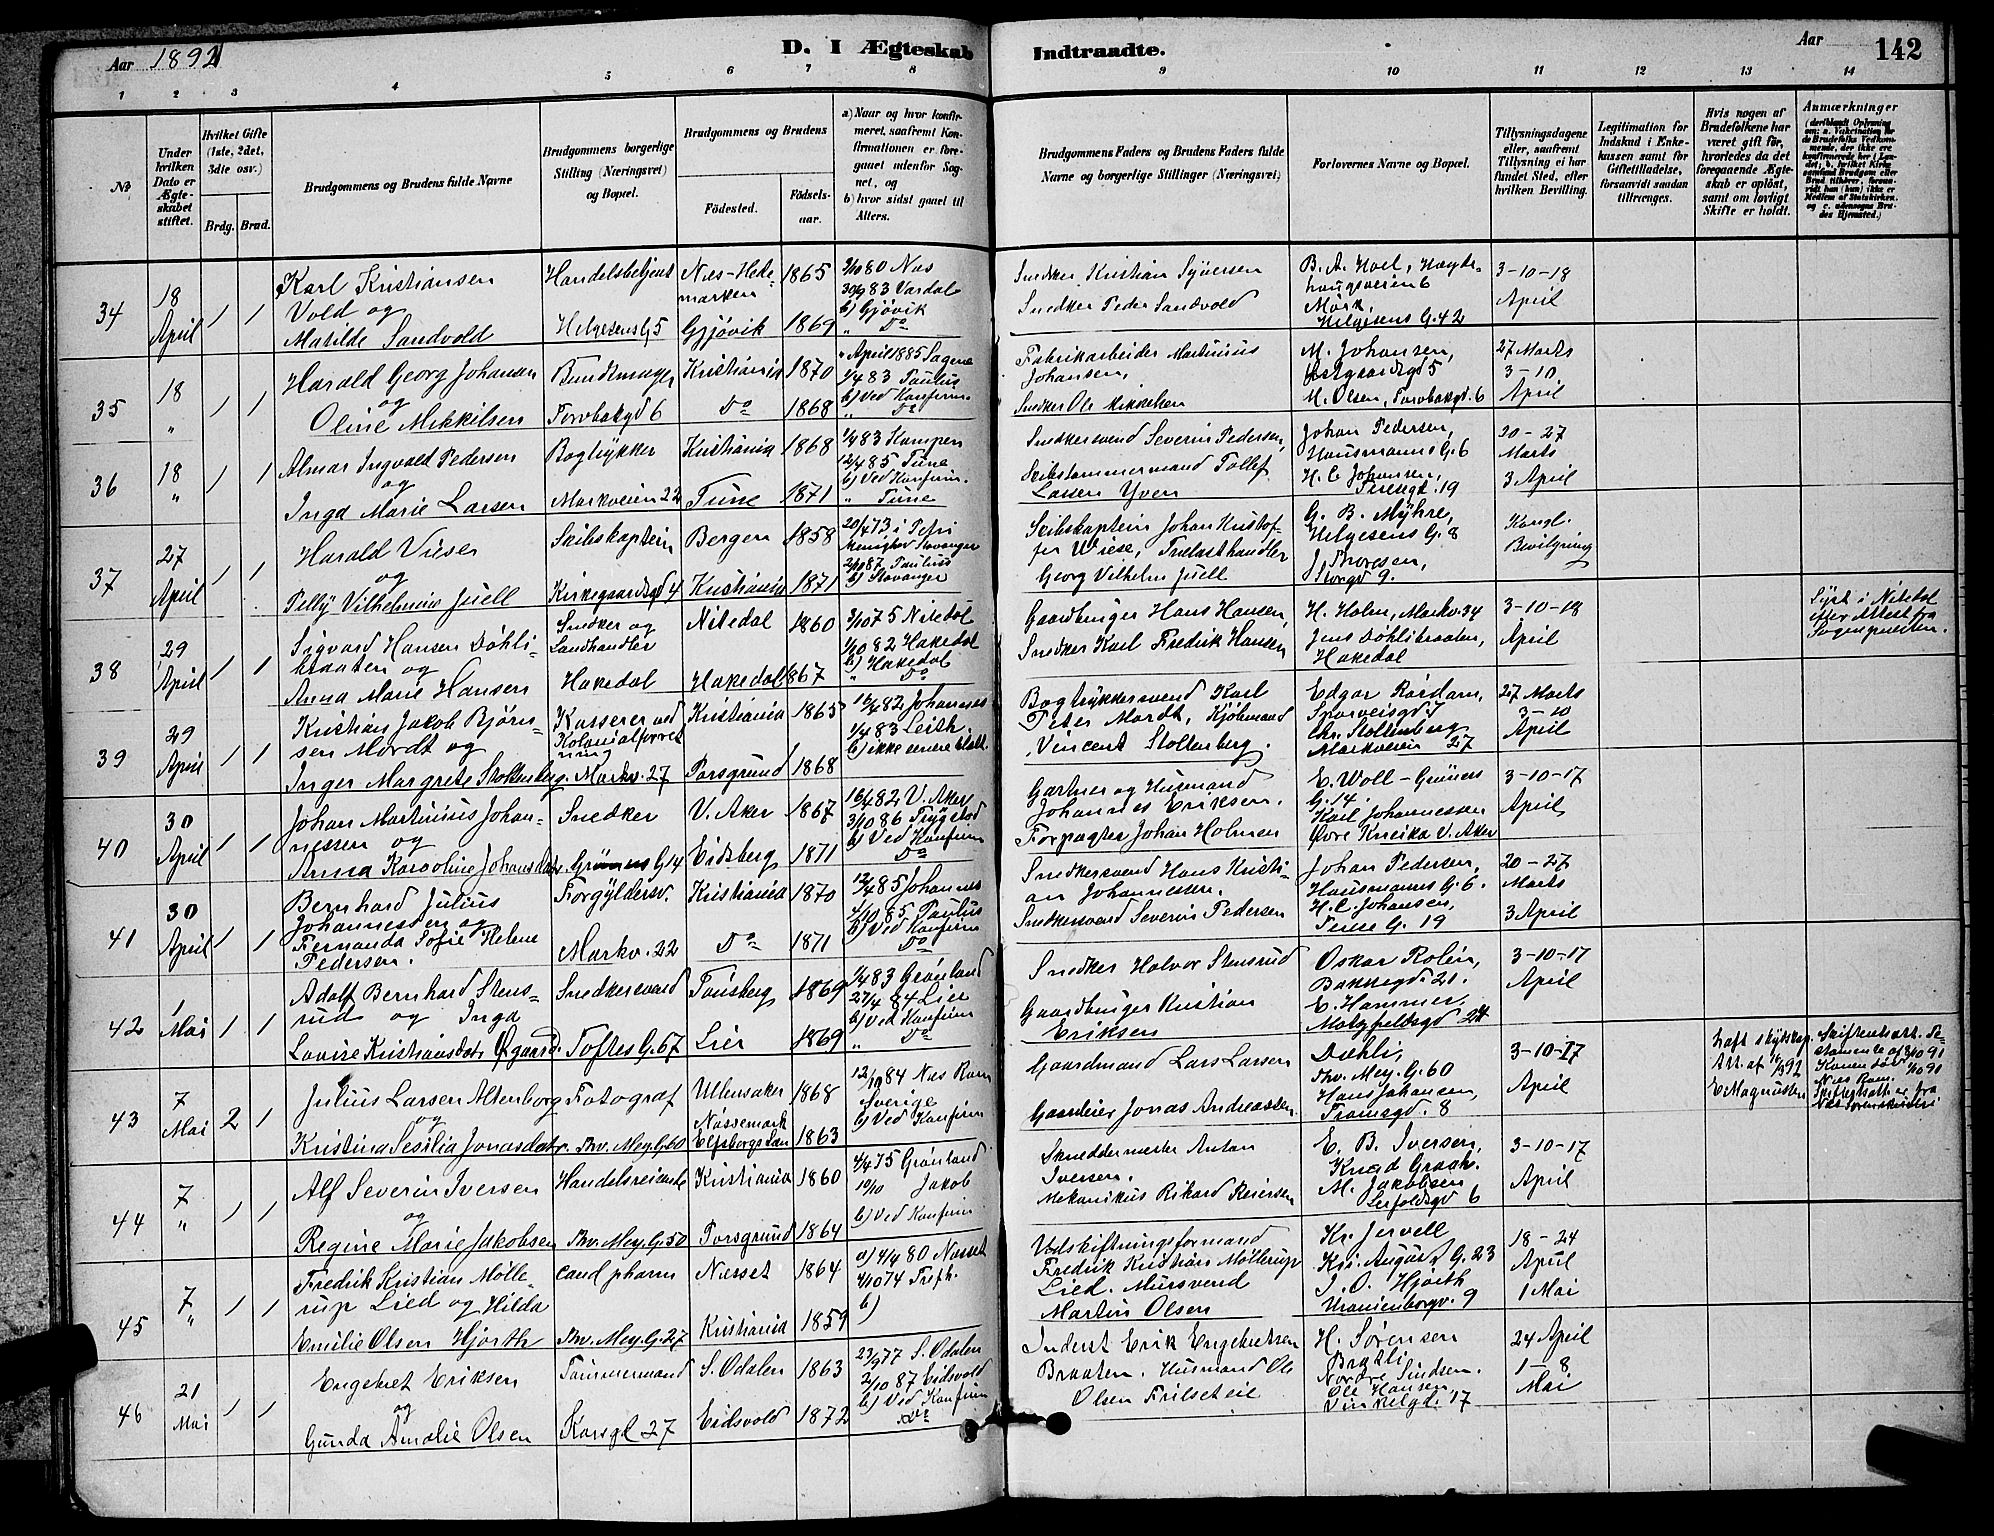 Aar 1892
D. I Ægteskab Indtraadte.
Aar
142
1 2 3 4 5 6 7 8 9 10 11 12 13 14
No
Under hvilken Dato er Ægteskabet stiftet.
Hvilket Gifte (1ste, 2det, 3die osv.)
Brdg. Brud.
Brudgommens og Brudens fulde Navne
Brudgommens borgerlige Stilling (Næringsvei) og Bopæl.
Brudgommens og Brudens
Fødested.
Fødselsaar.
a) Naar og hvor konfirmeret, saafremt Konfirmationen er foregaaet udenfor Sognet, og
b) hvor sidst gaaet til Alters.
Brudgommens Faders og Brudens Faders fulde Navne og borgerlige Stillinger (Næringsvei)
Forlovernes Navne og Bopæl.
Tillysningsdagene eller, saafremt Tillysning ei har fundet Sted, efter hvilken Bevilling.
Legitimation for Indskud i Enkekassen samt for Giftetilladelse, forsaavidt saadan tiltrænges.
Hvis nogen af Brudefolkene har været gift før, hvorledes da det foregaaende Ægteskab er opløst, samt om lovligt Skifte er holdt.
Anmærkninger
34 18 April 1 1
Karl Kristiansen Vold og Matilde Sandvold
Handelsbetjent Helgesens G. 5
Næs-Hedemarken 1865
Gjøvik 1869
80 Næs
83 Vardal
b) Gjøvik
" Do
Snedker Kristian Syversen
Snedker Peder Sandvold
B. A. Hoel,
Mørk, Helgesens G. 42
3-10-18 April
35 18 " 1 1
Harald Georg Johansen og Oline Mikkilsen
Bundtmager Torvbakgd 6
Kristiania 1870
Do 1868
April 1885 Sagene
1/4 83 Paulus
b) Ved Konfirm.
" Do
Fabrikarbeider Martinius Johansen,
Snedker Ole Mikkelsen
M. Johansen,
M. Olsen, Torvbakgd. 6
27 Marts 3-10 April
36 18 " 1 1
Almar Ingvald Pedersen og Inga Marie Larsen
Bogtrykker Markveien 22
Kristiania 1868
Tune 1871
1/4 83 Kampen
12/4 85 Tune
b) Ved Konfirm.
" Tune
Snedkersvend Severin Pedersen,
Skibstømmermand Tollef Larsen Yven
Johan Pedersen, Hausmanns G. 6
H. C. Johansen, Teresegd. 19
20-27 Marts 3 April
37 27 April 1 1
Harald Viese og Pelly Vilhelmine Juell
Skibskaptein Kirkegaardsgd 4
Bergen 1858
Kristiania 1871
20/4 73 i Petri Menighed Stavanger
2/10 87 Paulus
b) Stavanger
Skibskaptein Johan Kristoffer Wiese, Trælasthandler Georg Vilhelm Juell
G. B. Myhre, Helgesens G. 8
J. Thoresen, Storgd 9.
Kongl. Bevilgning
38 29 April 1 1
Sigvard Hansen Døhlibraaten og Anna Marie Hansen
Snedker og Landhandler Hakedal
Nitedal 1860
Hakedal 1867
3/10 75 Nitedal
1/10 82 Hakedal
b) Hakedal
" Do
Gaardbruger Hans Hansen,
Snedker Karl Fredrik Hansen
H. Holm, Markv. 34
Jens Døhlibraaten, Hakedal
3-10-18 April
Lyst i Nitedal efter Attest fra Sognepresten.
39 29 April 1 1
Kristian Jakob Bjørnsen Mordt og Inger Margrete Stoltenberg
Kasserer ved Kolonialforretning Markv. 27
Kristiania 1865
Porsgrund 1868
16/4 82 Johannes
1/4 83 Leith
b) ikke senere
Bogtrykkersvend Karl Peter Mordt, Kjøbmand Vincent Stoltenberg.
Edgar Rørdam, Sporveisgd 7
Chr. Stoltenberg Markveien 27
27 Marts 3-10 April
40 30 April 1 1
Johan Martinius Johannessen og Anna Karoline Johansdatr.
Snedker Grüners G. 14
V. Aker 1867
Eidsberg 1871
16/4 82 V. Aker
3/10 86 Trygstad
b) Ved Konfirm
Do
Gartner og Husmand Johannes Eriksen.
Forpagter Johan Holmen
E. Woll - Grüners G. 14.
Karl Johannessen Øvre Kneika V. Aker
3-10-17 April
41 30 April 1 1
Bernhard Julius Johannessen og Fernanda Sofie Helene Pedersen.
Forgyldersv. Markv. 22
Kristiania 1870
Do 1871
12/4 85 Johannes
4/10 85 Paulus
b) Ved Konfirm
Do
Snedkersvend Hans Kristian Johannessen.
Snedkersvend Severin Pedersen
Johan Pedersen, Hausmanns G. 6.
H. C. Johansen, Terese G. 19
20-27 Marts 3 April
42 1 Mai 1 1
Adolf Bernhard Stensrud og Inga Lovise Kristiansdatr. Øgaard
Snedkersvend Toftes G. 67
Tønsberg 1869
Lier 1869
1/4 83 Grønland
27/4 84 Lier
b) Ved Konfirm
" Do
Snedker Halvor Stensrud
Gaardbruger Kristian Eriksen
Oskar Rolin, Bakkegd. 21.
E. Hammer, Motzfeldtsgd 24
3-10-17 April
43 7 Mai 2 1
Julius Larsen Altenborg og Kristina Sesilia Jonasdatr.
Fotograf Thv. Mey. G. 60
Ullensaker 1868
Nøssemark Elfsborgs Län 1863
12/10 84 Næs Rom
Sverige
b) Ved Konfirm
Gaardmand Lars Larsen
Jonas Andreassen
Dæhli, Thv. Mey. G. 60
Hans Johansen, Tromsgd. 8
3-10-17 April
E. Magnussen
44 7 " 1 1
Alf Severin Iversen og Regine Marie Jakobsen
Handelsreisende Thv. Mey. G. 50
Kristiania 1860
Porsgrund 1864
4/4 75 Grønland
10/10 Jakob
b) Ved Konfirm.
Skræddermester Anton Iversen.
Mekanikus Rikard Reiersen
E. B. Iversen, Knud Graah.
M. Jakobsen Leifoldsgd 6
3-10-17 April
45 7 " 1 1
Fredrik Kristian Møllerup Lied og Hilda Emilie Olsen Hjorth
cand pharm Thv. Mey. G. 27
Næsset 1864
Kristiania 1859
a) 4/4 80 Næsset
4/10 74 Trefh.
b)
Udskiftningsformand Fredrik Kristian Møllerup Lied. Mursvend Martin Olsen
Kr. Jervell Kr. Augusts G. 23
J. O. Hjorth Uranienborgv. 9
18-24 April 1 Mai
46 21 Mai 1 1
Engebret Eriksen og Gunda Amalie Olsen
Tømmermand Korsgd 27
S. Odalen 1863
Eidsvold 1872
23/9 77 S. Odalen
2/10 87 Eidsvold
b) Ved Konfirm
Do
Inderst Erik Engebretsen Braaten. Husmand Ole Olsen Frilseteie
H. Sørensen Bratli Nordre Sindsen.
Ole Hansen, Vinkelgd. 17
24 April 1-8 Mai